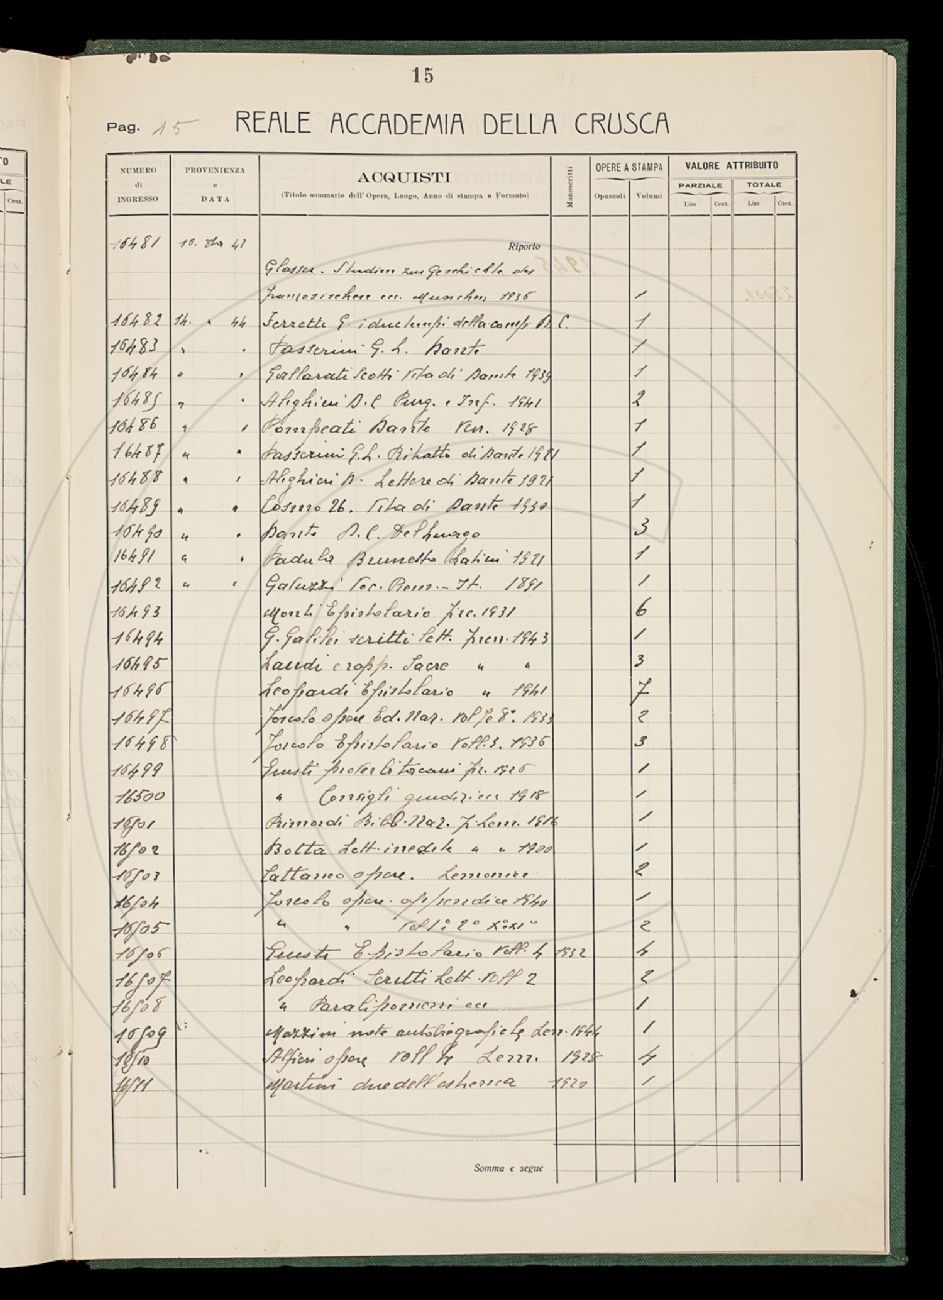 15
Pag. 15 REALE ACCADEMIA DELLA CRUSCA
NUMERO di INGRESSO
PROVENIENZA e DATA
ACQUISTI
(Titolo sommario dell'Opera, Luogo, Anno di stampa e Formato)
Manoscritti
OPERE A STAMPA
Opuscoli Volumi
VALORE ATTRIBUITO
PARZIALE TOTALE
Lire Cent. Lire Cent.
Riporto
16481 10. 43
Glasser. Studien zur Geschichte des
französischen ecc. München 1936 1
16482 14. " 44 Ferretti G. i due tempi della comp. D. C. 1
16483 " " Passerini G. L. Dante 1
16484 " " Gallarati Scotti Vita di Dante 1939 1
16485 " " Alighieri D. C. Purg. e Inf. 1941 2
16486 " " Pompeati Dante Ven. 1928 1
16487 " " Passerini G. L. Ritratto di Dante 1921 1
16488 " " Alighieri D. Lettere di Dante 1921 1
16489 " " Cosmo Vita di Dante 1930 1
16490 " " Dante D. C. Del Lungo 3
16491 " " Padula Brunetto Latini 1921 1
16492 " " Voc. Rom. - It. 1891 1
16493 Monti Epistolario 1931 6
16494 G. Galilei scritti lett. 1943 1
16495 Laudi e rapp. Sacre " " 3
16496 Leopardi Epistolario " 1941 7
16497 Foscolo opere Ed. Naz. 1933 2
16498 Foscolo Epistolario Voll. 3. 1936 3
16499 Giusti proverbi toscani 1926 1
16500 " Consigli giudizi ecc 1918 1
16501 Bibl. Naz. F. Lem. 1916 1
16502 Botta Lett. inedite " " 1900 1
16503 Cattaneo opere. Lemonnier 2
16504 Foscolo opere. appendice 1940 1
16505 " " 2
16506 Giusti Epistolario Voll. 4 1932 4
16507 Leopardi Scritti Lett. Voll 2 2
16508 " Paralipomeni ecc 1
16509 Mazzini note autobiografiche Lem. 1944 1
16510 Alfieri opere Voll 4 Lem. 1928 4
16511 Martini due dell'estrema 1920 1
Somma e segue